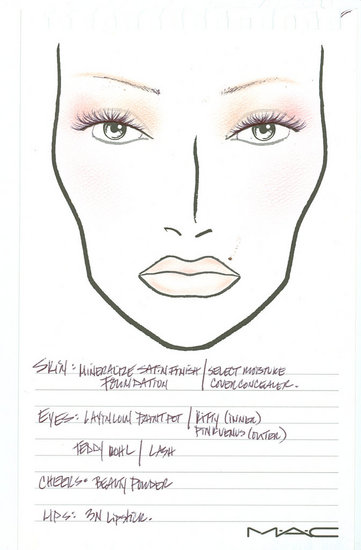 SKIN: MINERALIZE SATIN FINISH / SELECT MOISTURE
FOUNDATION COVER CONCEALER.
EYES: LAYIN LOW PAINT POT / RITZY (INNER)
PINK VENUS (OUTER)
TEDDY KOHL / LASH
CHEEKS: BEAUTY POWDER
LIPS: 3N LIPSTICK.
MAC